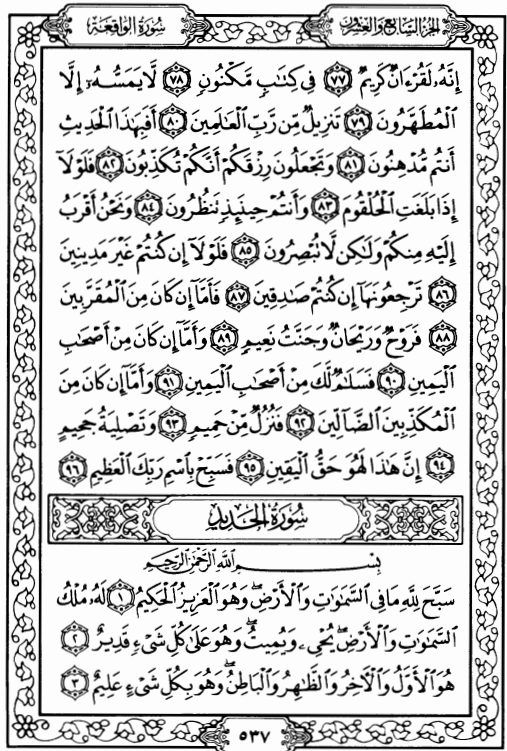 الجزء السابع والعشرون
سورة الواقعة
إِنَّهُۥ لَقُرْءَانٌ كَرِيمٌ ٧٧ فِي كِتَٰبٍ مَّكْنُونٍ ٧٨ لَّا يَمَسُّهُۥٓ إِلَّا
ٱلْمُطَهَّرُونَ ٧٩ تَنزِيلٌ مِّن رَّبِّ ٱلْعَٰلَمِينَ ٨٠ أَفَبِهَٰذَا ٱلْحَدِيثِ
أَنتُم مُّدْهِنُونَ ٨١ وَتَجْعَلُونَ رِزْقَكُمْ أَنَّكُمْ تُكَذِّبُونَ ٨٢ فَلَوْلَآ
إِذَا بَلَغَتِ ٱلْحُلْقُومَ ٨٣ وَأَنتُمْ حِينَئِذٍ تَنظُرُونَ ٨٤ وَنَحْنُ أَقْرَبُ
إِلَيْهِ مِنكُمْ وَلَٰكِن لَّا تُبْصِرُونَ ٨٥ فَلَوْلَآ إِن كُنتُمْ غَيْرَ مَدِينِينَ
٨٦ تَرْجِعُونَهَآ إِن كُنتُمْ صَٰدِقِينَ ٨٧ فَأَمَّآ إِن كَانَ مِنَ ٱلْمُقَرَّبِينَ
٨٨ فَرَوْحٌ وَرَيْحَانٌ وَجَنَّتُ نَعِيمٍ ٨٩ وَأَمَّآ إِن كَانَ مِنْ أَصْحَٰبِ
ٱلْيَمِينِ ٩٠ فَسَلَٰمٌ لَّكَ مِنْ أَصْحَٰبِ ٱلْيَمِينِ ٩١ وَأَمَّآ إِن كَانَ مِنَ
ٱلْمُكَذِّبِينَ ٱلضَّآلِّينَ ٩٢ فَنُزُلٌ مِّنْ حَمِيمٍ ٩٣ وَتَصْلِيَةُ جَحِيمٍ
٩٤ إِنَّ هَٰذَا لَهُوَ حَقُّ ٱلْيَقِينِ ٩٥ فَسَبِّحْ بِٱسْمِ رَبِّكَ ٱلْعَظِيمِ ٩٦
سورة الحديد
بِسْمِ ٱللَّهِ ٱلرَّحْمَٰنِ ٱلرَّحِيمِ
سَبَّحَ لِلَّهِ مَا فِي ٱلسَّمَٰوَٰتِ وَٱلْأَرْضِۖ وَهُوَ ٱلْعَزِيزُ ٱلْحَكِيمُ ١ لَهُۥ مُلْكُ
ٱلسَّمَٰوَٰتِ وَٱلْأَرْضِۖ يُحْيِۦ وَيُمِيتُۖ وَهُوَ عَلَىٰ كُلِّ شَيْءٍ قَدِيرٌ ٢
هُوَ ٱلْأَوَّلُ وَٱلْءَاخِرُ وَٱلظَّٰهِرُ وَٱلْبَاطِنُۖ وَهُوَ بِكُلِّ شَيْءٍ عَلِيمٌ ٣
٥٣٧